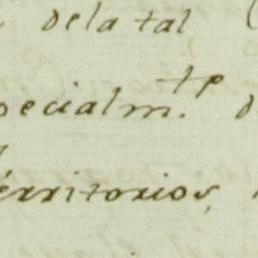 dela tal
pecialm.te d
erritorios,